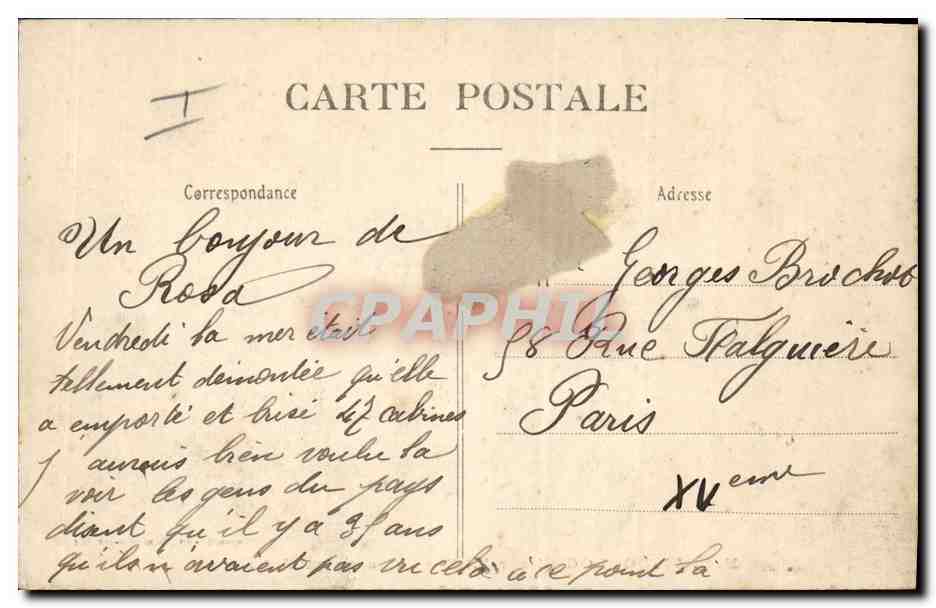 I
CARTE POSTALE
Correspondance
Un bonjour de
Rosa
Vendredi la mer était
tellement démontée qu'elle
a emporté et brisé 47 cabines
j'aurais bien voulu la
voir les gens du pays
disent qu'il y a 35 ans
qu'ils n'avaient pas vu cela à ce point là
Adresse
Georges Brochot
58 Rue Falguière
Paris
XVeme
CPAPHIL